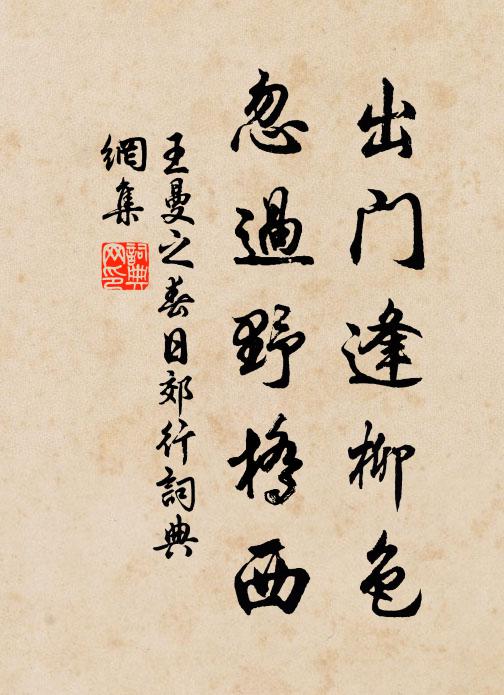 出门逢柳色
忽過野橋西
王曼之春日郊行詞典
網集
詞典
网印